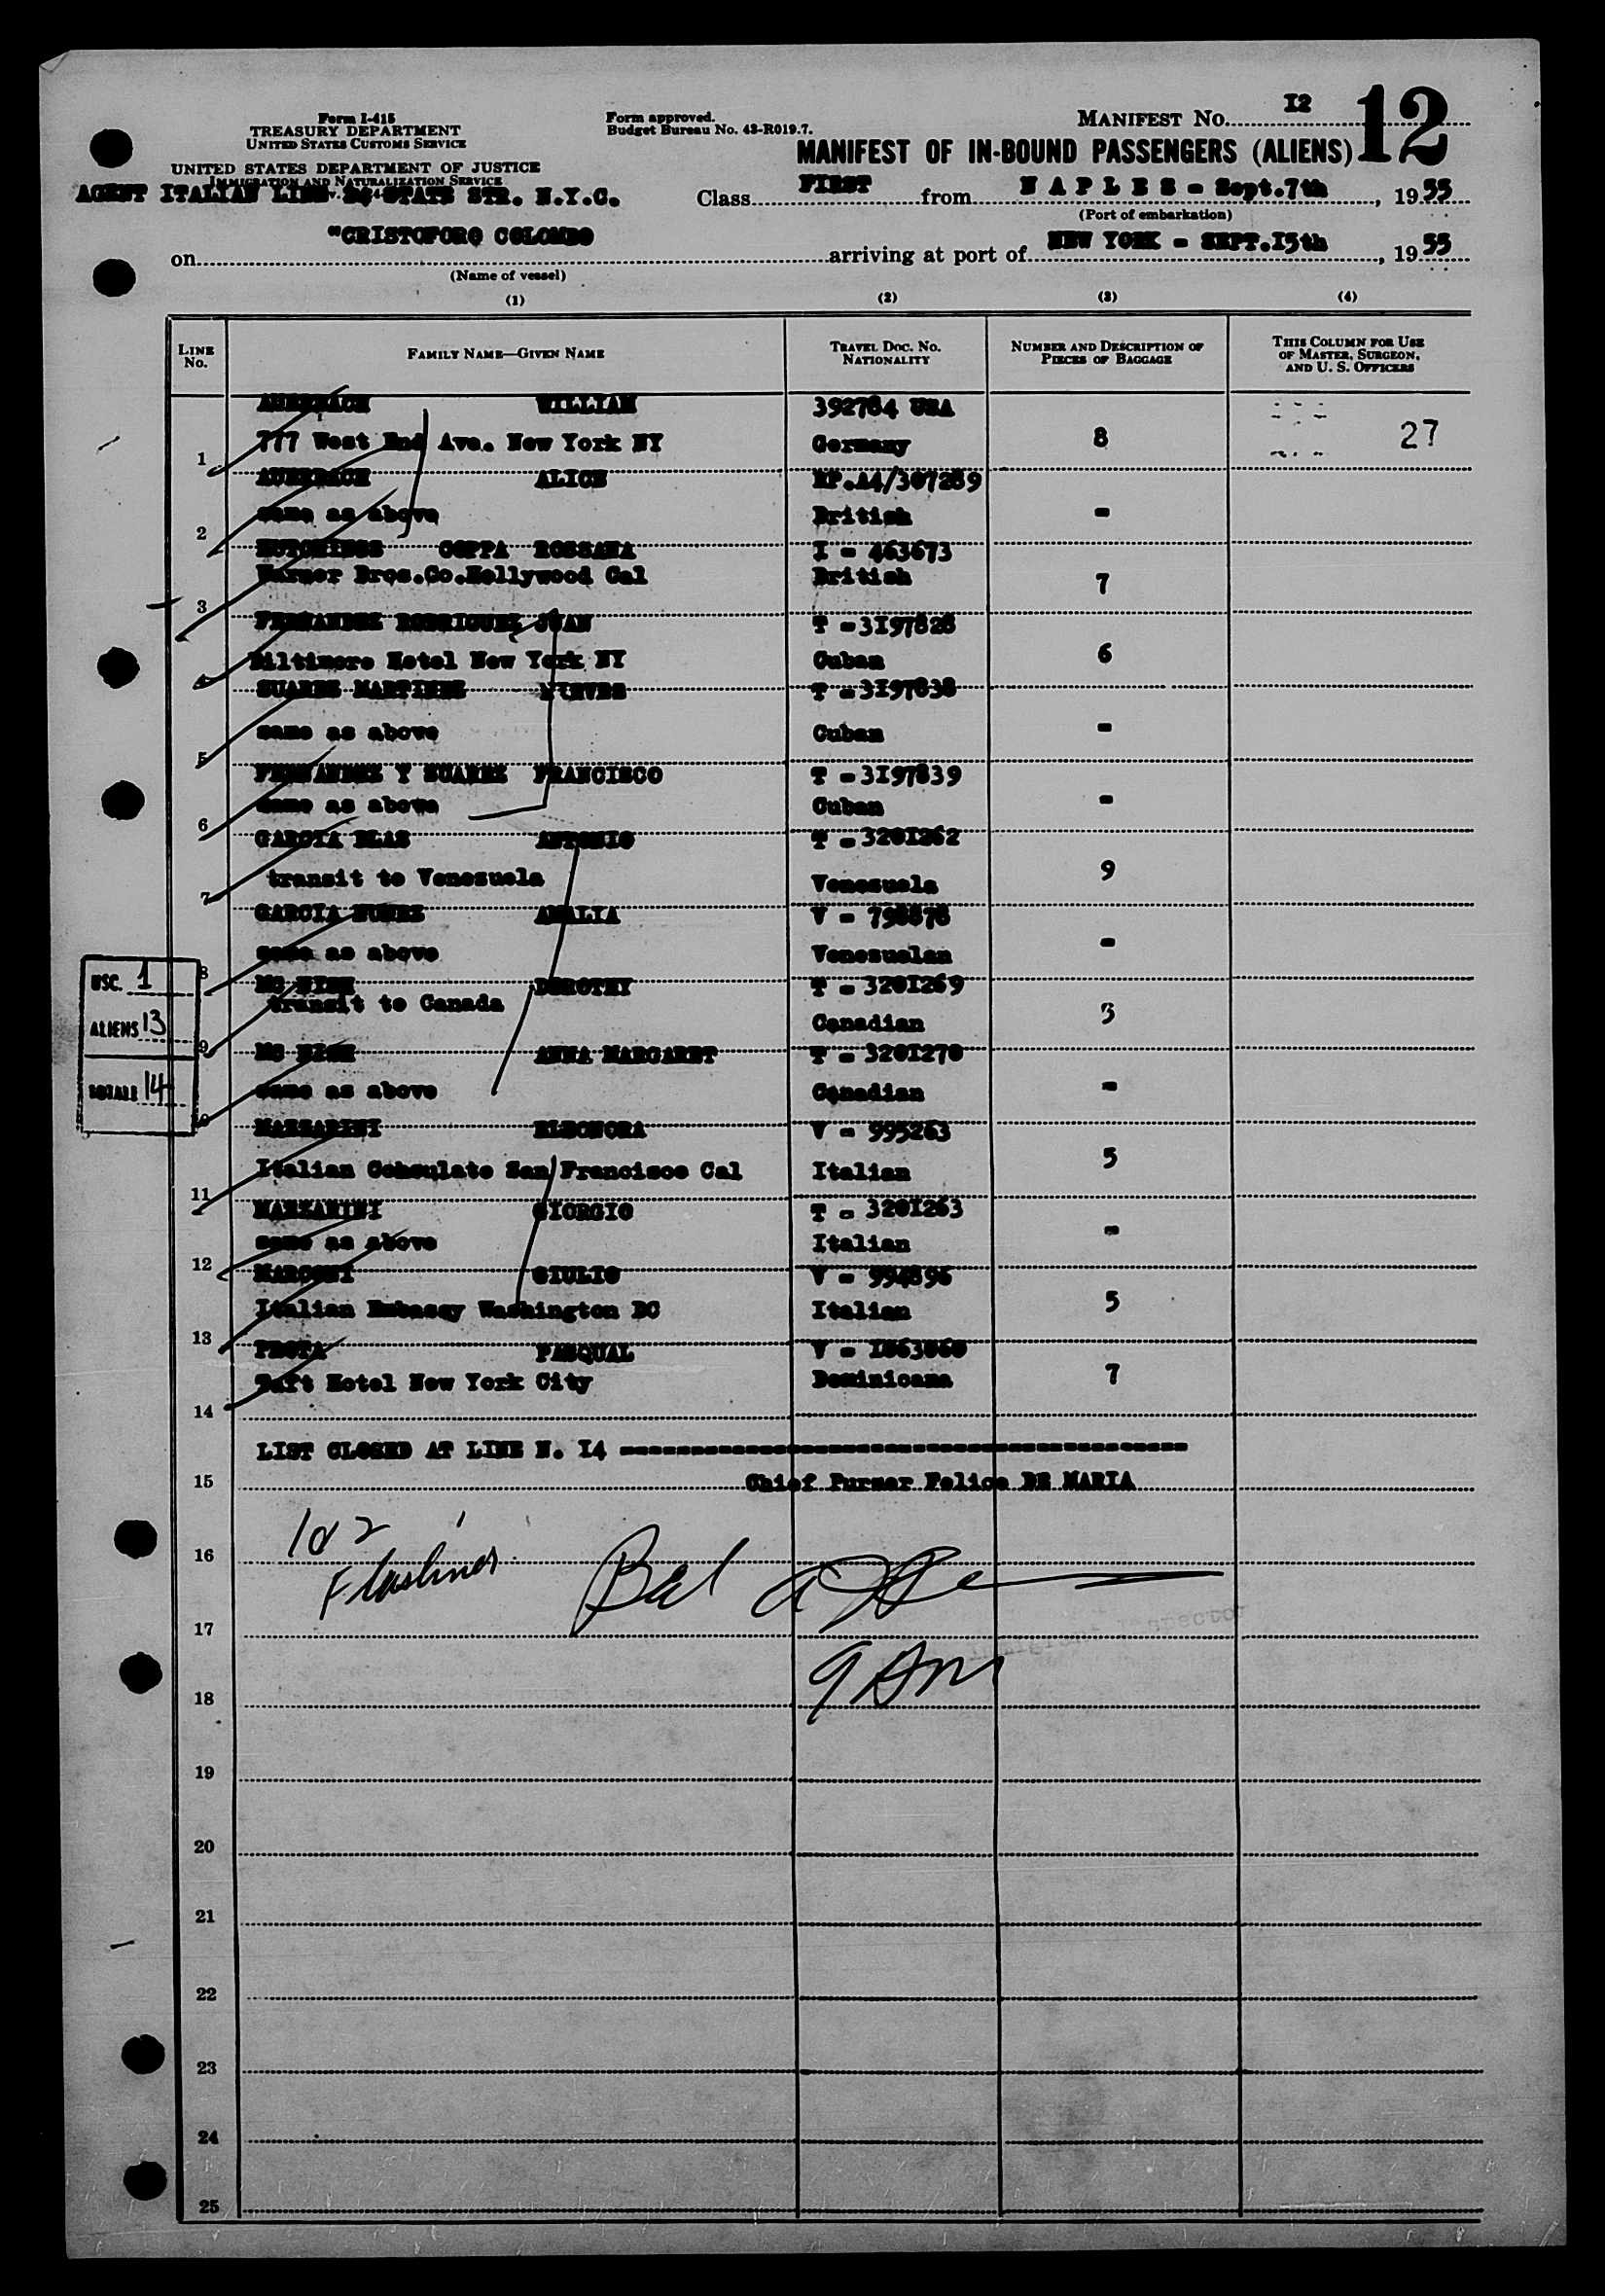 Form I-415
TREASURY DEPARTMENT
UNITED STATES CUSTOMS SERVICE
UNITED STATES DEPARTMENT OF JUSTICE
IMMIGRATION AND NATURALIZATION SERVICE
Form approved.
Budget Bureau No. 43-R019.7.
MANIFEST No. I2
12
MANIFEST OF IN-BOUND PASSENGERS (ALIENS)
AGENT ITALIAN LINE 24 STATE STR. N.Y.C.
Class FIRST from N A P L E S - Sept.7th, 1955
(Port of embarkation)
on "CRISTOFORO COLOMBO arriving at port of NEW YORK - SEPT.I5th, 1955
(Name of vessel)
(1) (2) (3) (4)
LINE No. FAMILY NAME—GIVEN NAME TRAVEL DOC. No. NATIONALITY NUMBER AND DESCRIPTION OF PIECES OF BAGGAGE THIS COLUMN FOR USE OF MASTER, SURGEON, AND U. S. OFFICERS
AUERBACH WILLIAM 392784 USA
1 777 West End Ave. New York NY Germany 8 27
AUERBACH ALICE RP.A4/307289
2 same as above British -
HUTCHINGS COPPA ROSSANA I - 463673
3 Warner Bros.Co.Hollywood Cal British 7
FERNANDEZ RODRIGUEZ JUAN T - 3I97828
4 Biltimore Hotel New York NY Cuban 6
SUAREZ MARTINEZ NIEVES T - 3I97838
5 same as above Cuban -
FERNANDEZ Y SUAREZ FRANCISCO T - 3I97839
6 same as above Cuban -
GARCIA BLAS ANTONIO T - 320I262
7 transit to Venezuela Venezuela 9
GARCIA NUNEZ AMALIA V - 798878
8 same as above Venezuelan -
MC NISH DOROTHY T - 320I269
9 transit to Canada Canadian 3
MC NISH ANNA MARGARET T - 320I270
10 same as above Canadian -
MARZARINI ELEONORA V - 995263
11 Italian Consulate San Francisco Cal Italian 5
MARZARINI GIORGIO T - 320I263
12 same as above Italian -
MARCONI GIULIO V - 994896
13 Italian Embassy Washington DC Italian 5
PROTA PASQUAL V - I063060
14 Taft Hotel New York City Dominicana 7
USC. 1
ALIENS 13
TOTALE 14
LIST CLOSED AT LINE N. I4
15 Chief Purser Felice DE MARIA
16
17
18
19
20
21
22
23
24
25